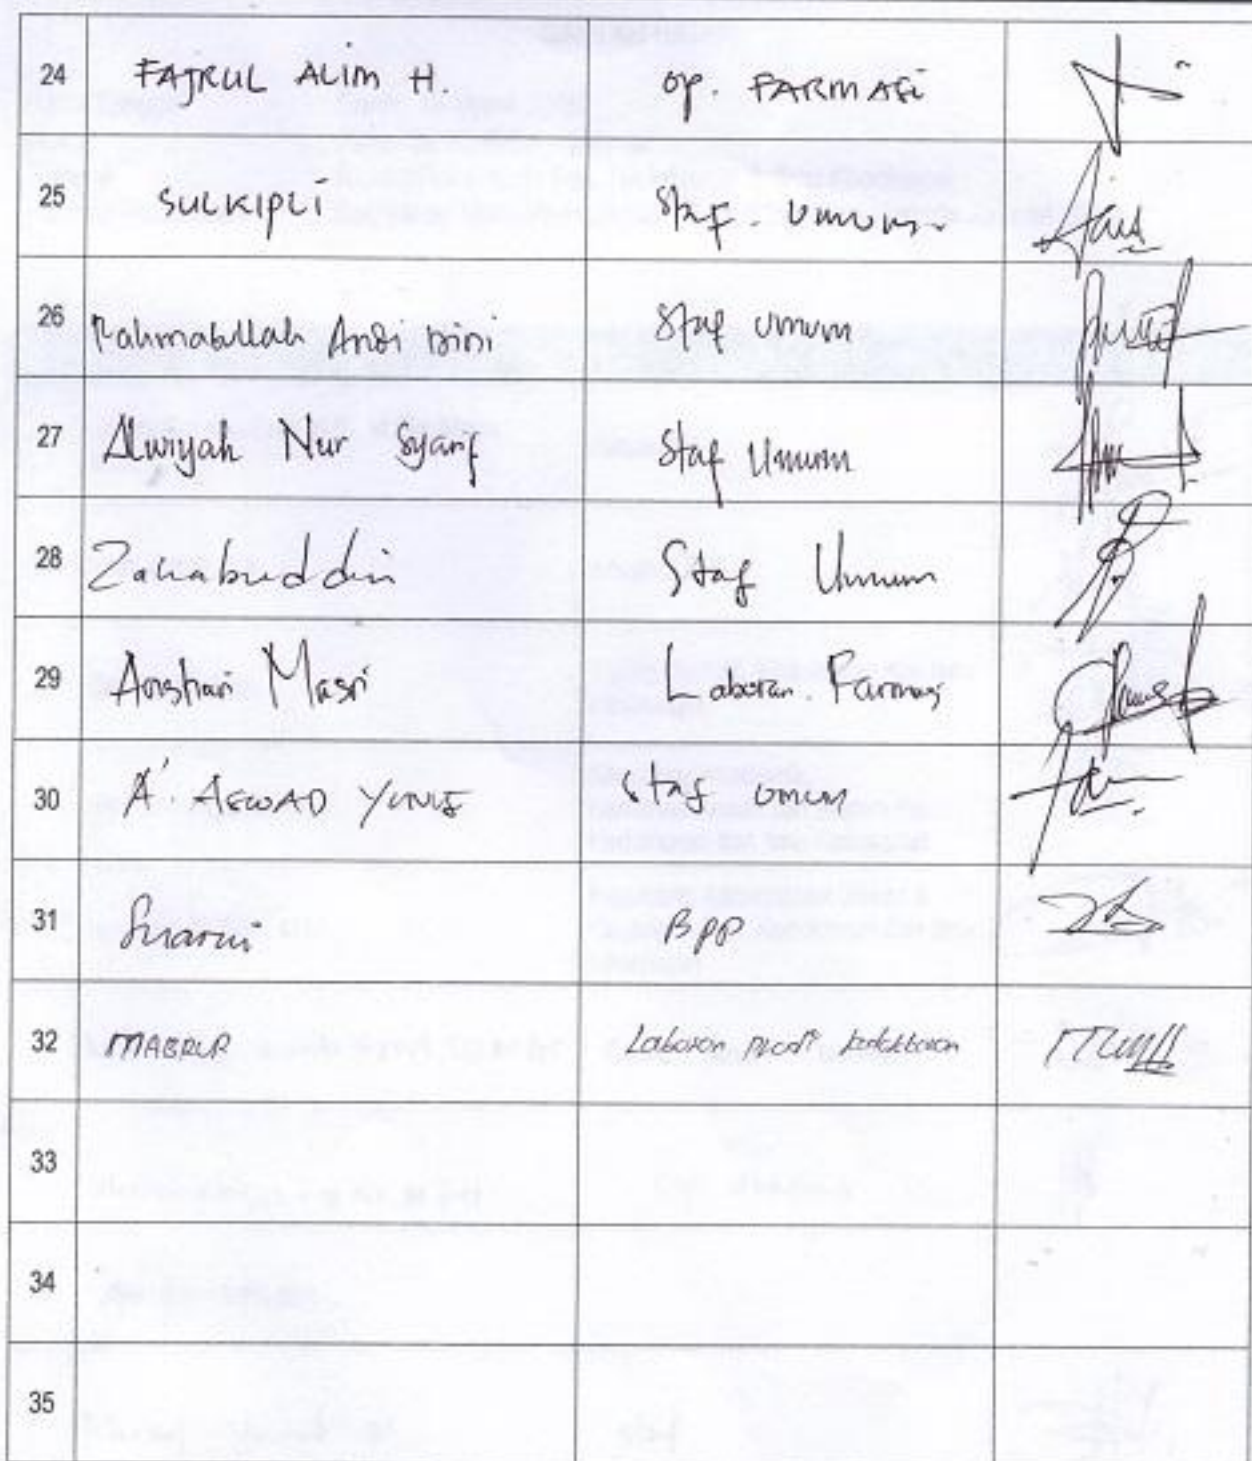 24 FAJRUL ALIM H. OP. FARMASi
25 SULKIPLi Staf. Umum.
26 Rahmatullah Andi Staf Umum
27 Alwiyah Nur Syarif Staf Umum
28 Zakabuddin Staf Umum
29 Masri Laboran. Farmasi
30 A. ASWAD YUNUS Staf Umum
31 Suarni BPP
32 MABRUR Laboran prodi kedokteran
33
34
35